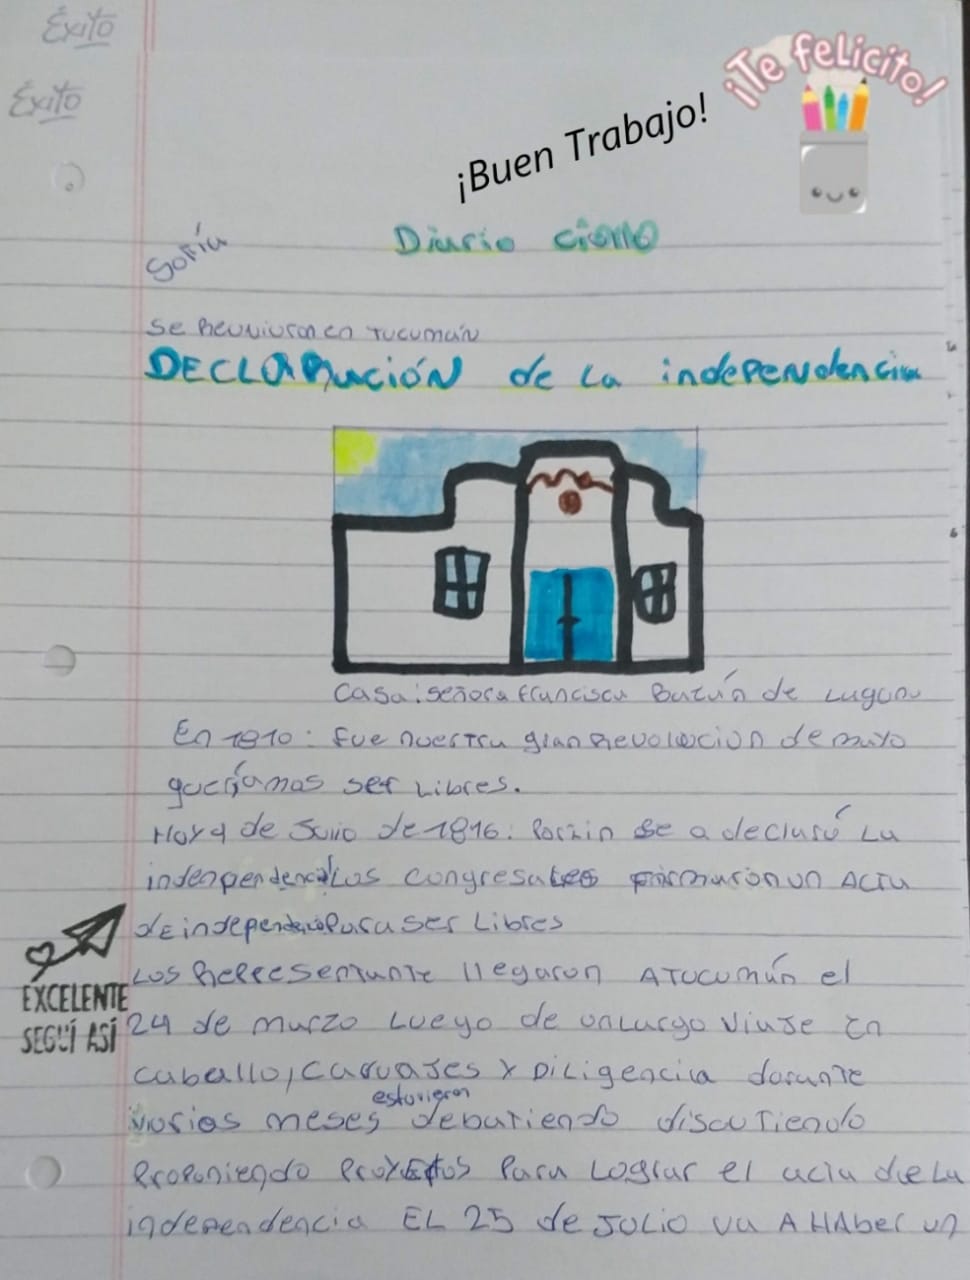 Éxito
Éxito
¡Te felicito!
¡Buen Trabajo!
Sofía
Diario
se Reunieron en Tucumán
DECLARación de la independencia
Casa: señora francisca Bazán de Laguna
En 1810: fue nuestra gran Revolucion de mayo
queríamos ser Libres.
Hoy 9 de Julio de 1816: se a declaró La
indenpendencia Los congresales firmaron un Acta
de independencia para ser Libres
Los Representante llegaron A Tucumán el
24 de marzo Luego de un Largo viaje en
caballo, carruajes y Diligencia durante
varios meses estuvieron debatiendo discutiendo
Proponiendo Proyectos Para Lograr el acta de La
independencia EL 25 de JULIO va A HAber un
EXCELENTE
SEGUÍ ASÍ